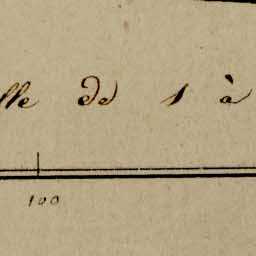 lle de 1 à
100